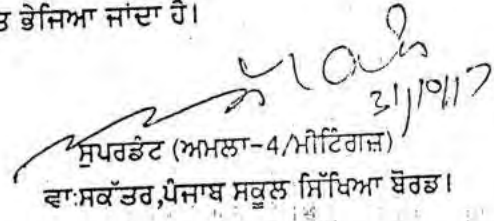 ਭੇਜਿਆ ਜਾਂਦਾ ਹੈ।
31/10/17
ਸੁਪਰਡੰਟ (ਅਮਲਾ-4/ਮੀਟਿੰਗਜ਼)
ਵਾ:ਸਕੱਤਰ,ਪੰਜਾਬ ਸਕੂਲ ਸਿੱਖਿਆ ਬੋਰਡ।